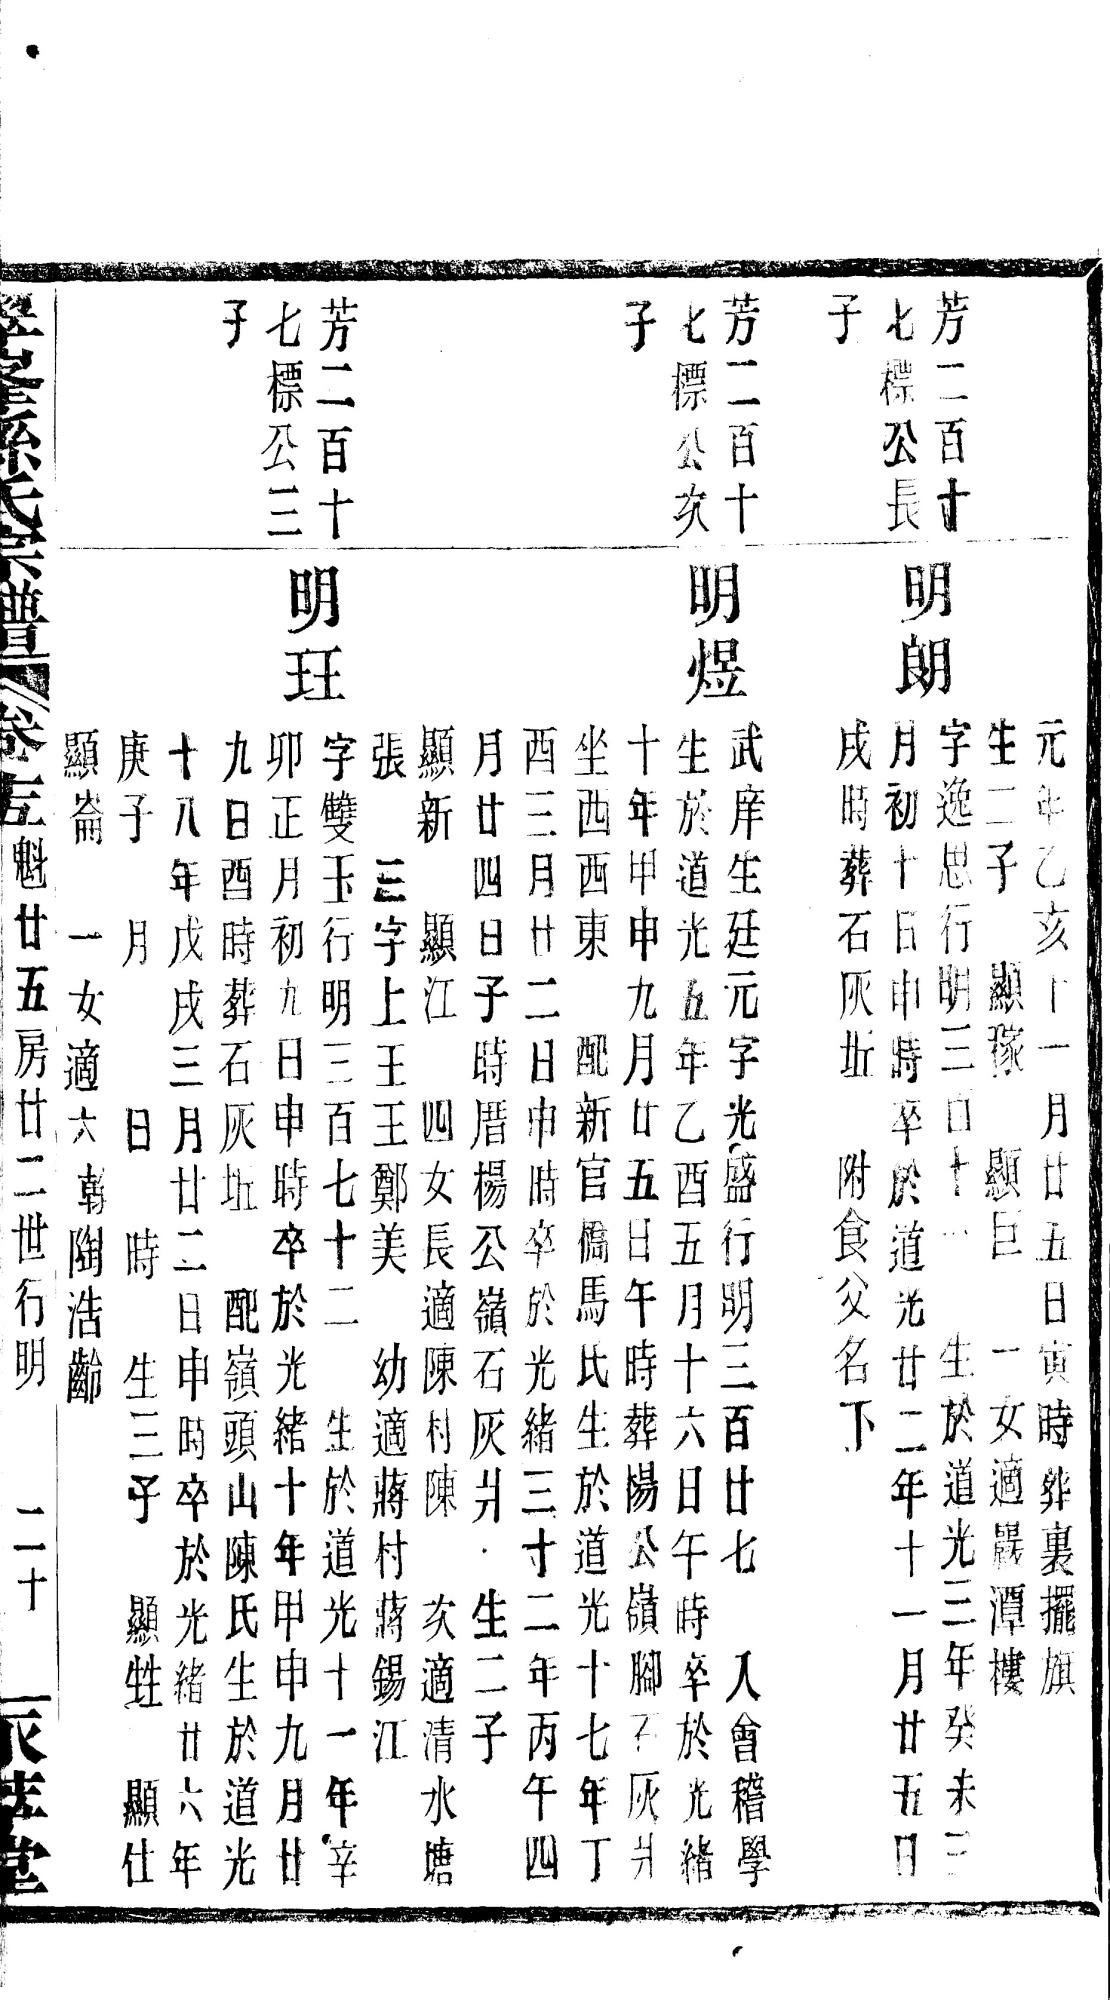 元年乙亥十一月廿五日寅時葬裏擺旗
生二子 顯稼 顯巨 一女適嚴潭樓
芳二百十
七標公長
子
明朗
字逸思行明三百十一 生於道光三年癸未三
月初十日申時卒於道光廿二年十一月廿五日
戌時葬石灰坵 附食父名下
芳二百十
七標公次
子
明煜
武庠生廷元字光盛行明三百廿七 入會稽學
生於道光五年乙酉五月十六日午時卒於光緒
十年甲申九月廿五日午時葬楊公嶺腳石灰爿
坐酉西東 配新官橋馬氏生於道光十七年丁
酉三月廿二日申時卒於光緒三十二年丙午四
月廿四日子時厝楊公嶺石灰爿 生二子
顯新 顯江 四女長適陳村陳 次適清水塘
張 三字上王王鄭美 幼適蔣村蔣錫江
芳二百十
七標公三
子
明玨
字雙玉行明三百七十二 生於道光十一年辛
卯正月初九日申時卒於光緒十年甲申九月廿
九日酉時葬石灰坵 配嶺頭山陳氏生於道光
十八年戊戌三月廿二日申時卒於光緒廿六年
庚子 月 日 時 生三子 顯甡 顯仕
顯崙 一女適大韓陶浩齡
孫氏宗譜 卷 魁廿五房廿二世行明 二十 堂